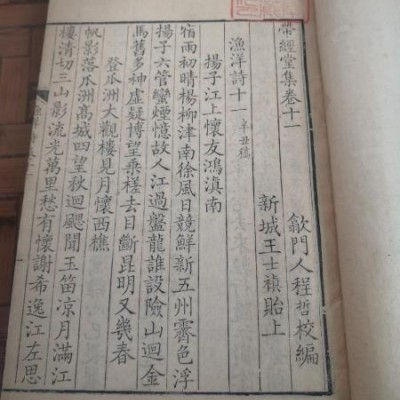 帶經堂集卷十一
歙門人程哲校編
新城王士禛貽上
漁洋詩十一 辛丑稿
揚子江上懷友鴻滇南
宿雨初晴楊柳津南徐風日競鮮新五州霽色浮
揚子六管蠻煙憶故人江過盤龍誰設險山迴金
馬舊多神虛疑博望乗槎去目斷昆明又幾春
登瓜洲大觀樓見月懷西樵
帆影落瓜洲高城四望秋迴颸聞玉笛凉月滿江
樓清切三山影流光萬里愁有懷謝希逸江左思